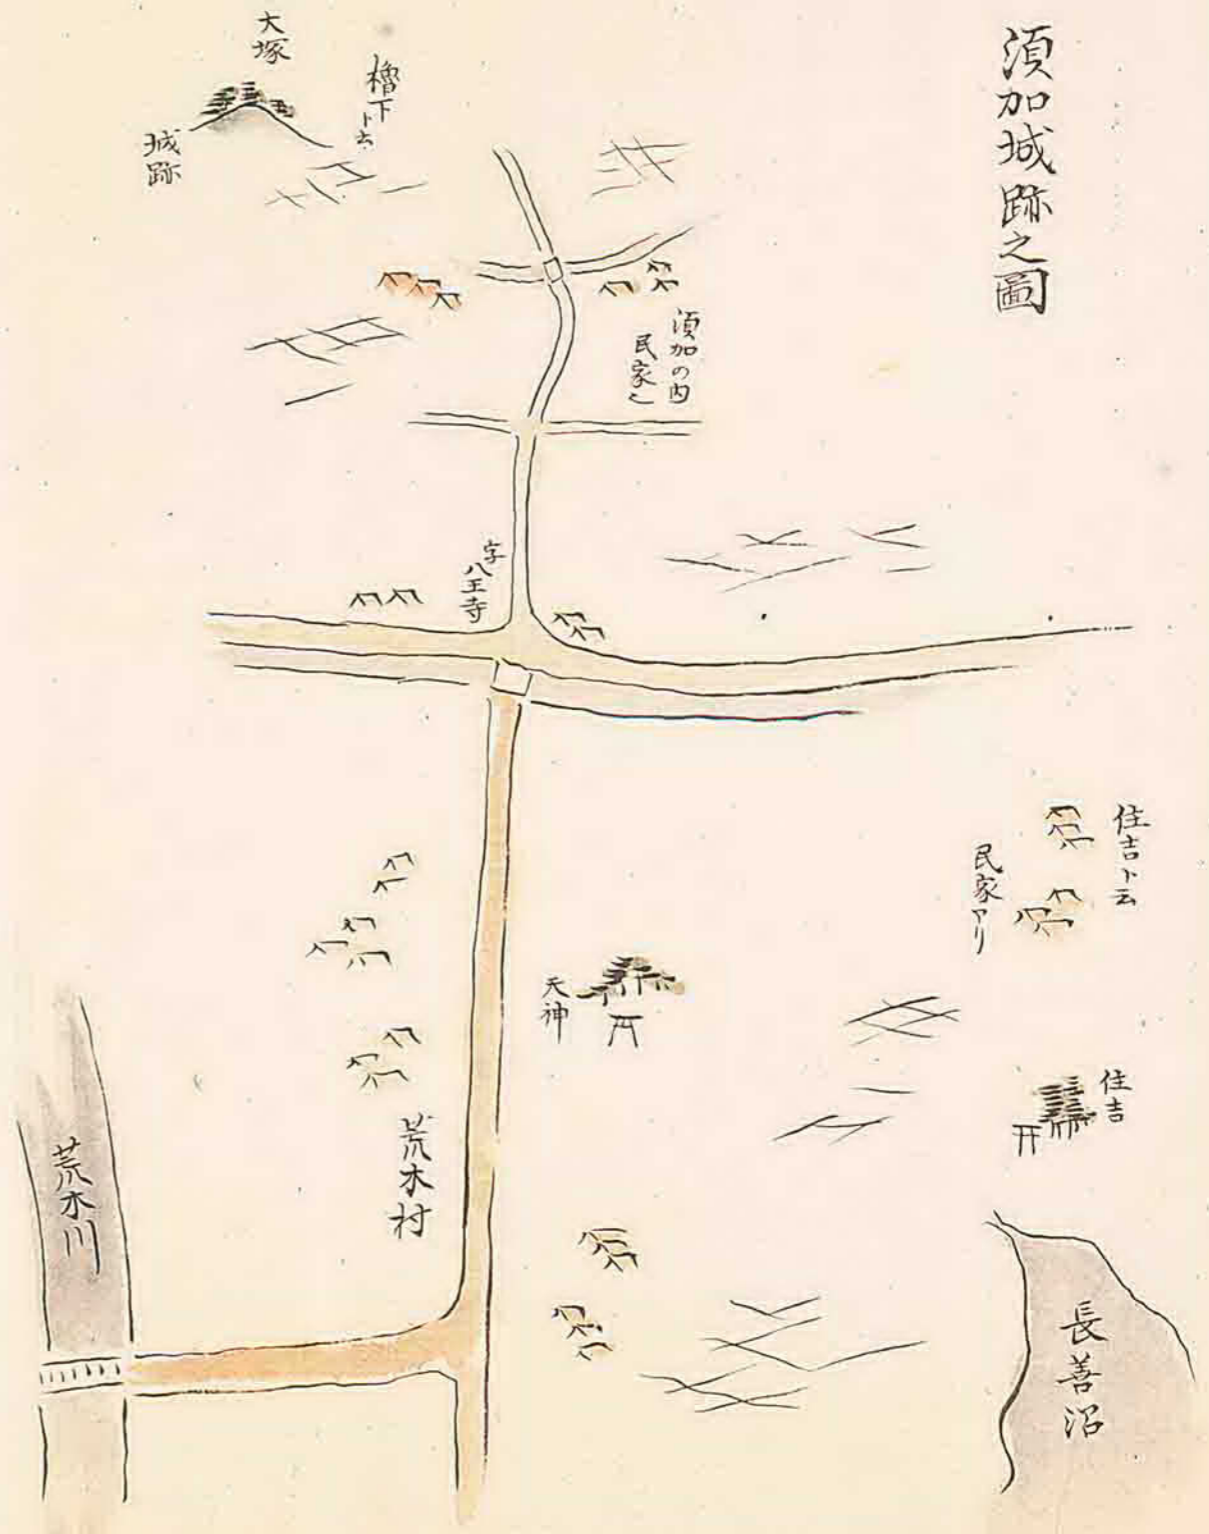 須加城跡之圖
大塚
城跡
櫓下ト云
須加の内
民家也
字八王寺
住吉ト云
民家アリ
天神
住吉
荒木村
荒木川
長善沼